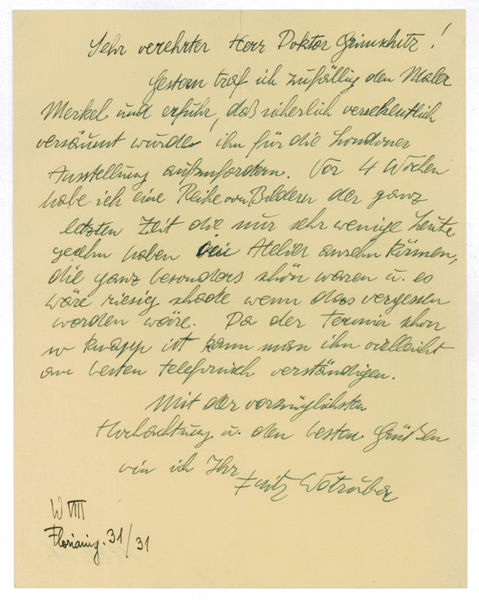 Sehr verehrter Herr Doktor Grimschitz!
Gestern traf ich zufällig den Maler
Merkel und erfuhr, daß sicherlich versehentlich
versäumt wurde ihn für die Londoner
Ausstellung aufzufordern. Vor 4 Wochen
habe ich eine Reihe von Bildern der ganz
letzten Zeit die nur sehr wenige Leute
gesehn haben im Atelier ansehn können,
die ganz besonders schön waren u. es
wäre riesig schade wenn das vergessen
worden wäre. Da der Termin schon
so knapp ist kann man ihn vielleicht
am besten telefonisch verständigen.
Mit der vorzüglichsten
Hochachtung u. den besten Grüßen
bin ich Ihr
Fritz Wotruba
W VIII
Florianig. 31/31